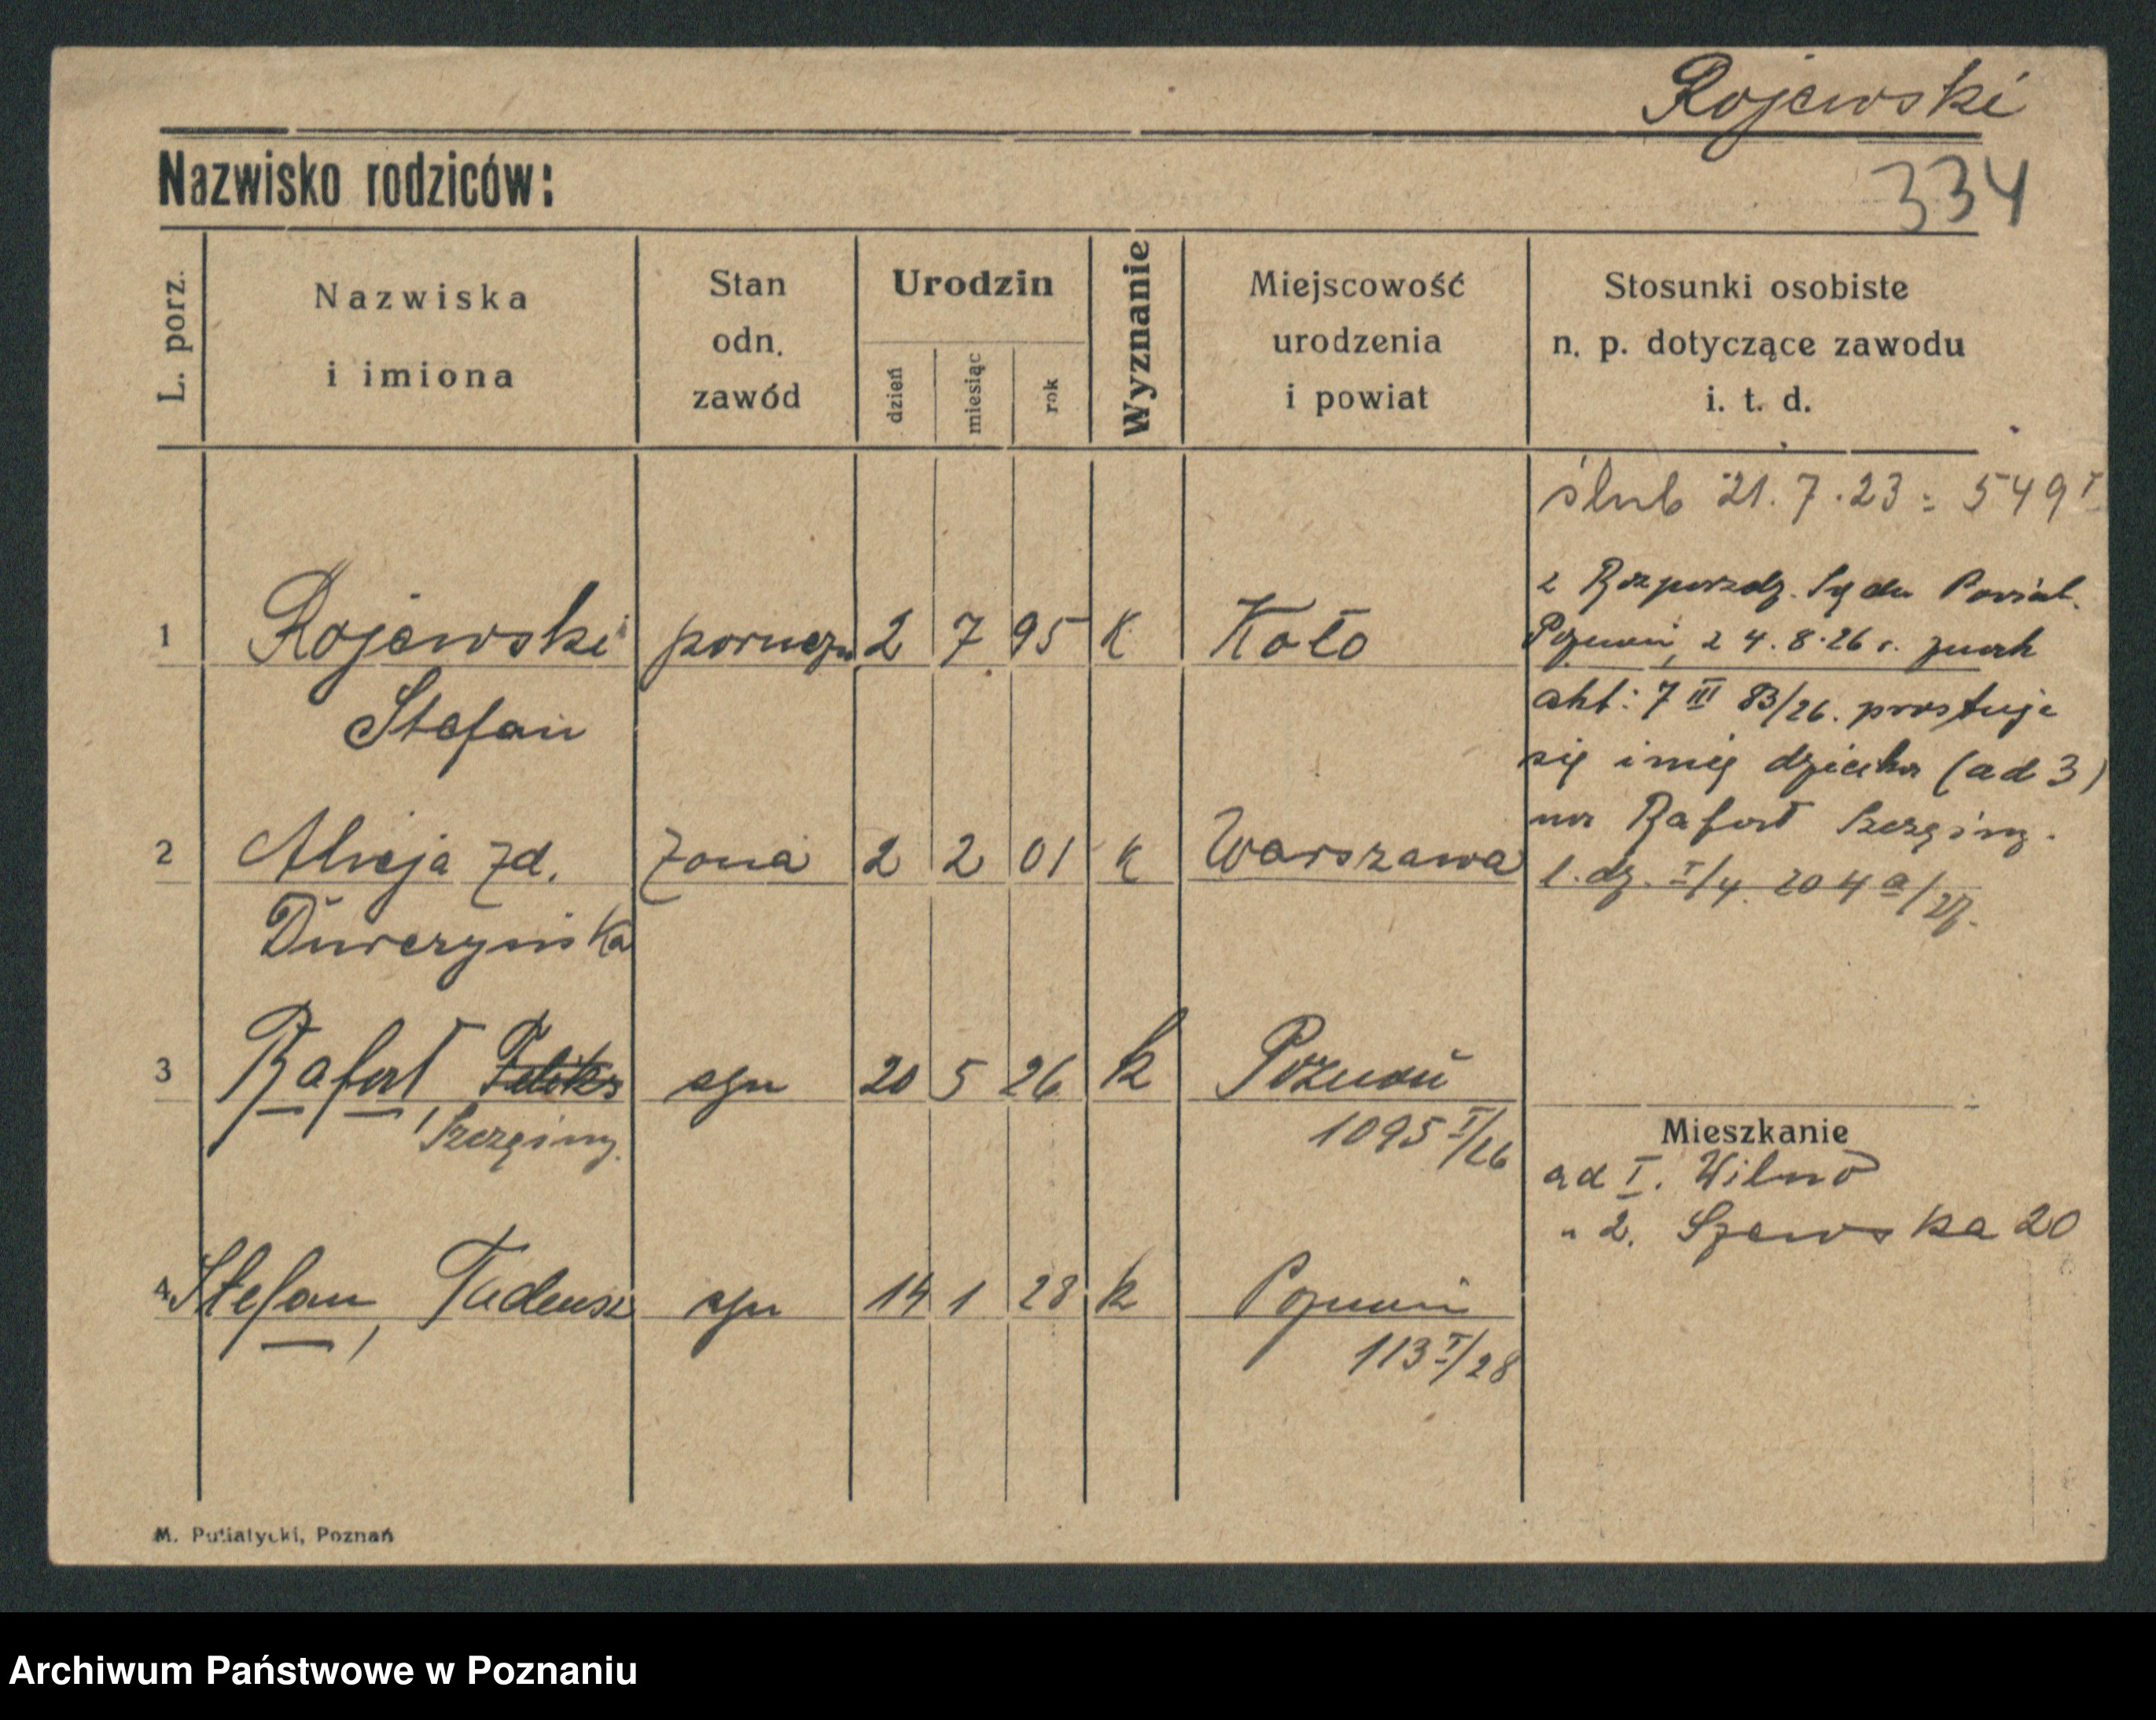 Rojewski
Nazwisko rodziców:
334
L. porz.
Nazwiska
i imiona
Stan
odn.
zawód
Urodzin
dzień
miesiąc
rok
Wyznanie
Miejscowość
urodzenia
i powiat
Stosunki osobiste
n. p. dotyczące zawodu
i. t. d.
ślub 21.7.23 = 549 I
1 Rojewski poruczn 2 7 95 K Koło
Stefan
z Rozporządz. Sądu Powiat.
Poznań, z 4.8.26 r. znach
akt: 7 III 83/26. prostuje
się imię dziecka (ad 3)
na Rafał Szczęsny.
l. dz. I/4. 204 a/27.
2 Alicja zd. żona 2 2 01 K Warszawa
3 Rafał Feliks syn 20 5 26 k Poznań
Szczęsny.
1095 I/26
Mieszkanie
ad I. Wilno
" 2. Szewska 20
4 Stefan, Tadeusz syn 14 1 28 k Poznań
113 I/28
M. Putiatycki, Poznań
Archiwum Państwowe w Poznaniu